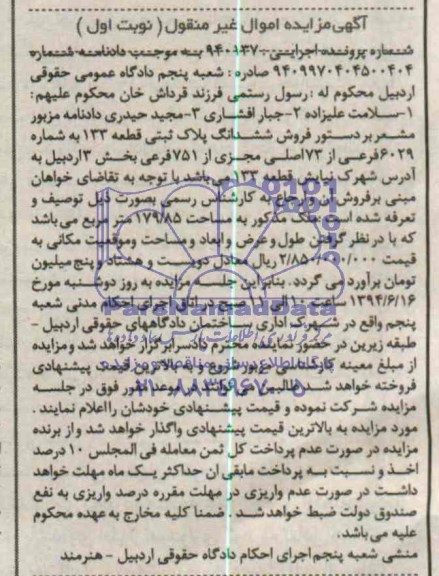 آگهی مزایده اموال غیر منقول ( نوبت اول )
شماره پرونده اجرایی : ۹۴۰۱۳۷ به موجب دادنامه شماره
۹۴۰۹۹۷۰۴۰۴۵۰۰۴۰۴ صادره : شعبه پنجم دادگاه عمومی حقوقی
اردبیل محکوم له : رسول رستمی فرزند قرداش خان محکوم علیهم :
۱-سلامت علیزاده ۲-جبار افشاری ۳-مجید حیدری دادنامه مزبور
مشعر بر دستور فروش ششدانگ پلاک ثبتی قطعه ۱۳۳ به شماره
۶۰۲۹فرعی از ۷۳اصلی مجزی از ۷۵۱فرعی بخش ۳اردبیل به
آدرس شهرک نیایش قطعه ۱۳۳ می باشد با توجه به تقاضای خواهان
مبنی برفروش آن و ارجاع به کارشناس رسمی بصورت ذیل توصیف و
تعرفه شده است: ملک مذکور به مساحت ۱۷۹/۸۵ متر مربع می باشد
که با در نظر گرفتن طول و عرض و ابعاد و مساحت وموقعیت مکانی به
قیمت ۲/۸۵۰/۰۰۰/۰۰۰ ریال معادل دویست و هشتاد و پنج میلیون
تومان برآورد می گردد. بنابراین جلسه مزایده به روز دوشنبه مورخ
۱۳۹۴/۶/۱۶ ساعت ۱۰ الی ۱۱ صبح در اتاق اجرای احکام مدنی شعبه
پنجم واقع در شهرک اداری ساختمان دادگاههای حقوقی اردبیل -
طبقه زیرین در حضور نماینده محترم دادسرا برگزار خواهد شد و مزایده
از مبلغ معینه کارشناسی مزبور شروع و به بالاترین قیمت پیشنهادی
فروخته خواهد شد. طالبین می توانند در موعد مزبور فوق در جلسه
مزایده شرکت نموده و قیمت پیشنهادی خودشان رااعلام نمایند .
مورد مزایده به بالاترین قیمت پیشنهادی واگذار خواهد شد و از برنده
مزایده در صورت عدم پرداخت کل ثمن معامله فی المجلس ۱۰ درصد
اخذ و نسبت به پرداخت مابقی ان حداکثر یک ماه مهلت خواهد
داشت در صورت عدم واریزی در مهلت مقرره درصد واریزی به نفع
صندوق دولت ضبط خواهد شد . ضمنا کلیه مخارج به عهده محکوم
علیه می باشد.
منشی شعبه پنجم اجرای احکام دادگاه حقوقی اردبیل - هنرمند
ParsNamadData
۰۲۱-۸۸۳۴۹۶۷۰-۵